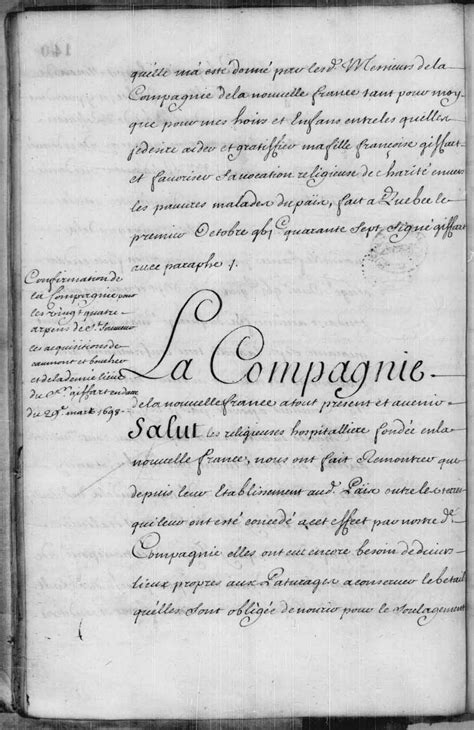 quelle m'a esté donné par les d. Messieurs de la
Compagnie de la nouvelle france tant pour moy
que pour mes hoirs et Enfans entre les quelles
je desire aider et gratiffier ma fille françoise giffart
et favoriser sa vocation religieuse de charité envers
les pauvres malades du païx, fait a Quebec le
premier Octobre gbj c quarante Sept, Signé giffart
avec paraphe /.
Confirmation de
la Compagnie pour
les vingt quatre
arpens de St. Sauveur
les acquisitions de
caumont et boucher
et de la demie lieue
du Sr. giffart en datte
du 29e. mars 1698.
La Compagnie
de la nouvelle france a tout present et avenir
Salut les religieuses hospitalliere fondée en la
nouvelle france, nous ont fait Remontrer que
depuis leur Etablissement aud. Païx outre le terrein
qui leur ont esté concedé a cet effect par nostre de.
Compagnie elles ont eue encore besoin de divers
lieux propres aux Paturages a conserver le betail
quelles Sont obligée de nourir pour le Soulagement